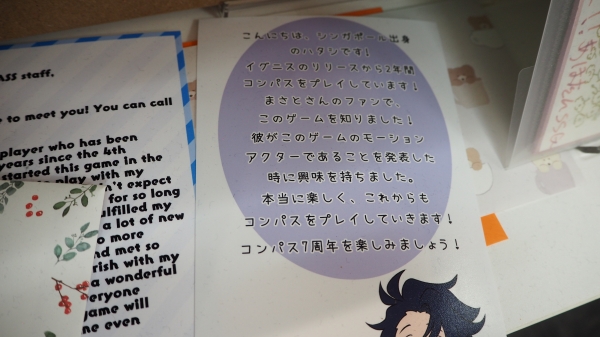 ASS staff,
e to meet you! You can call
player who has been
years since the 4th
started this game in the
play with my
n't expect
for so long
ulfilled my
a lot of new
o more
nd met so
rish with my
a wonderful
everyone
game will
me even
こんにちは、シンガポール出身
のハタシです！
イグニスのリリースから2年間
コンパスをプレイしています！
まさとさんのファンで、
このゲームを知りました！
彼がこのゲームのモーション
アクターであることを発表した
時に興味を持ちました。
本当に楽しく、これからも
コンパスをプレイしていきます！
コンパス7周年を楽しみましょう！